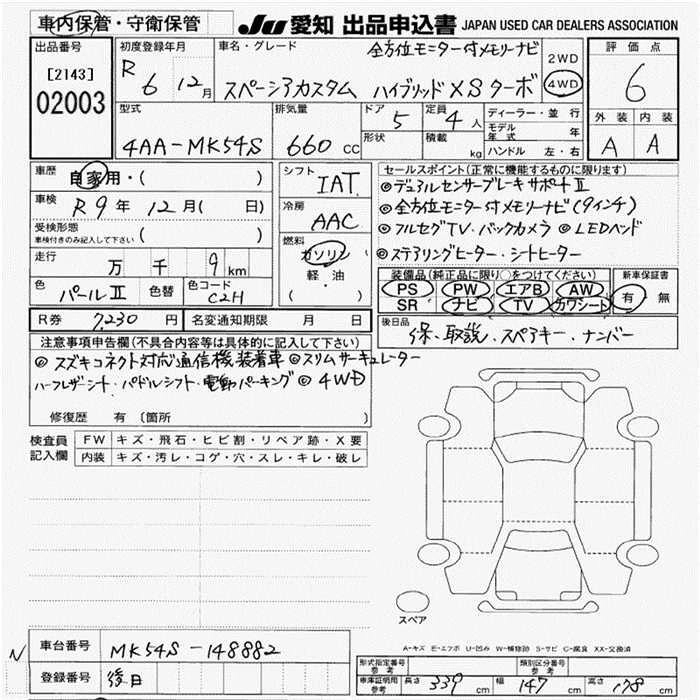 車内保管・守衛保管
JU 愛知 出品申込書 JAPAN USED CAR DEALERS ASSOCIATION
出品番号
[2143]
02003
初度登録年月
R 6 12月
車名・グレード
全方位モニター付メモリーナビ
スペーシアカスタム ハイブリッドXS ターボ
2WD
4WD
評価点
6
外装 内装
A A
型式
4AA-MK54S
排気量
660 cc
ドア
5
形状
定員
4人
積載
kg
ディーラー・並行
モデル年式 年
ハンドル 左・右
車歴
自家用・( )
車検
R 9年 12月( 日)
受検形態
車検付きのみ記入して下さい ( )
走行
万 千 9km
色
パールII
色替
色コード
C2H
R券 7,230円
名変通知期限 月 日
シフト
IAT
冷房
AAC
燃料
ガソリン
軽・油
( )
セールスポイント(正常に機能するものに限ります)
◎デュアルセンサーブレーキサポートII
◎全方位モニター付メモリーナビ(9インチ)
◎フルセグTV、バックカメラ ◎LEDヘッド
◎ステアリングヒーター・シートヒーター
装備品(純正品に限り○をつけてください)
PS PW エアB AW
SR ナビ TV カワシート
新車保証書
有 無
後日品
保、取説、スペアキー・ナンバー
注意事項申告欄(不具合内容等は具体的に記入して下さい)
◎スズキコネクト対応通信機装着車 ◎スリムサーキュレーター
ハーフレザーシート・パドルシフト・電動パーキング ◎4WD
修復歴 有〔箇所 〕
検査員記入欄
FW キズ・飛石・ヒビ割・リペア跡・X要
内装 キズ・汚レ・コゲ・穴・スレ・キレ・破レ
スペア
A-キズ E-エクボ U-凹み W-補修跡 S-サビ C-腐食 XX-交換済
N
車台番号 MK54S-148882
登録番号 後日
形式指定番号 参考
類別区分番号 参考
車庫証明用 参考
長さ 339cm 幅 147cm 高さ 178cm